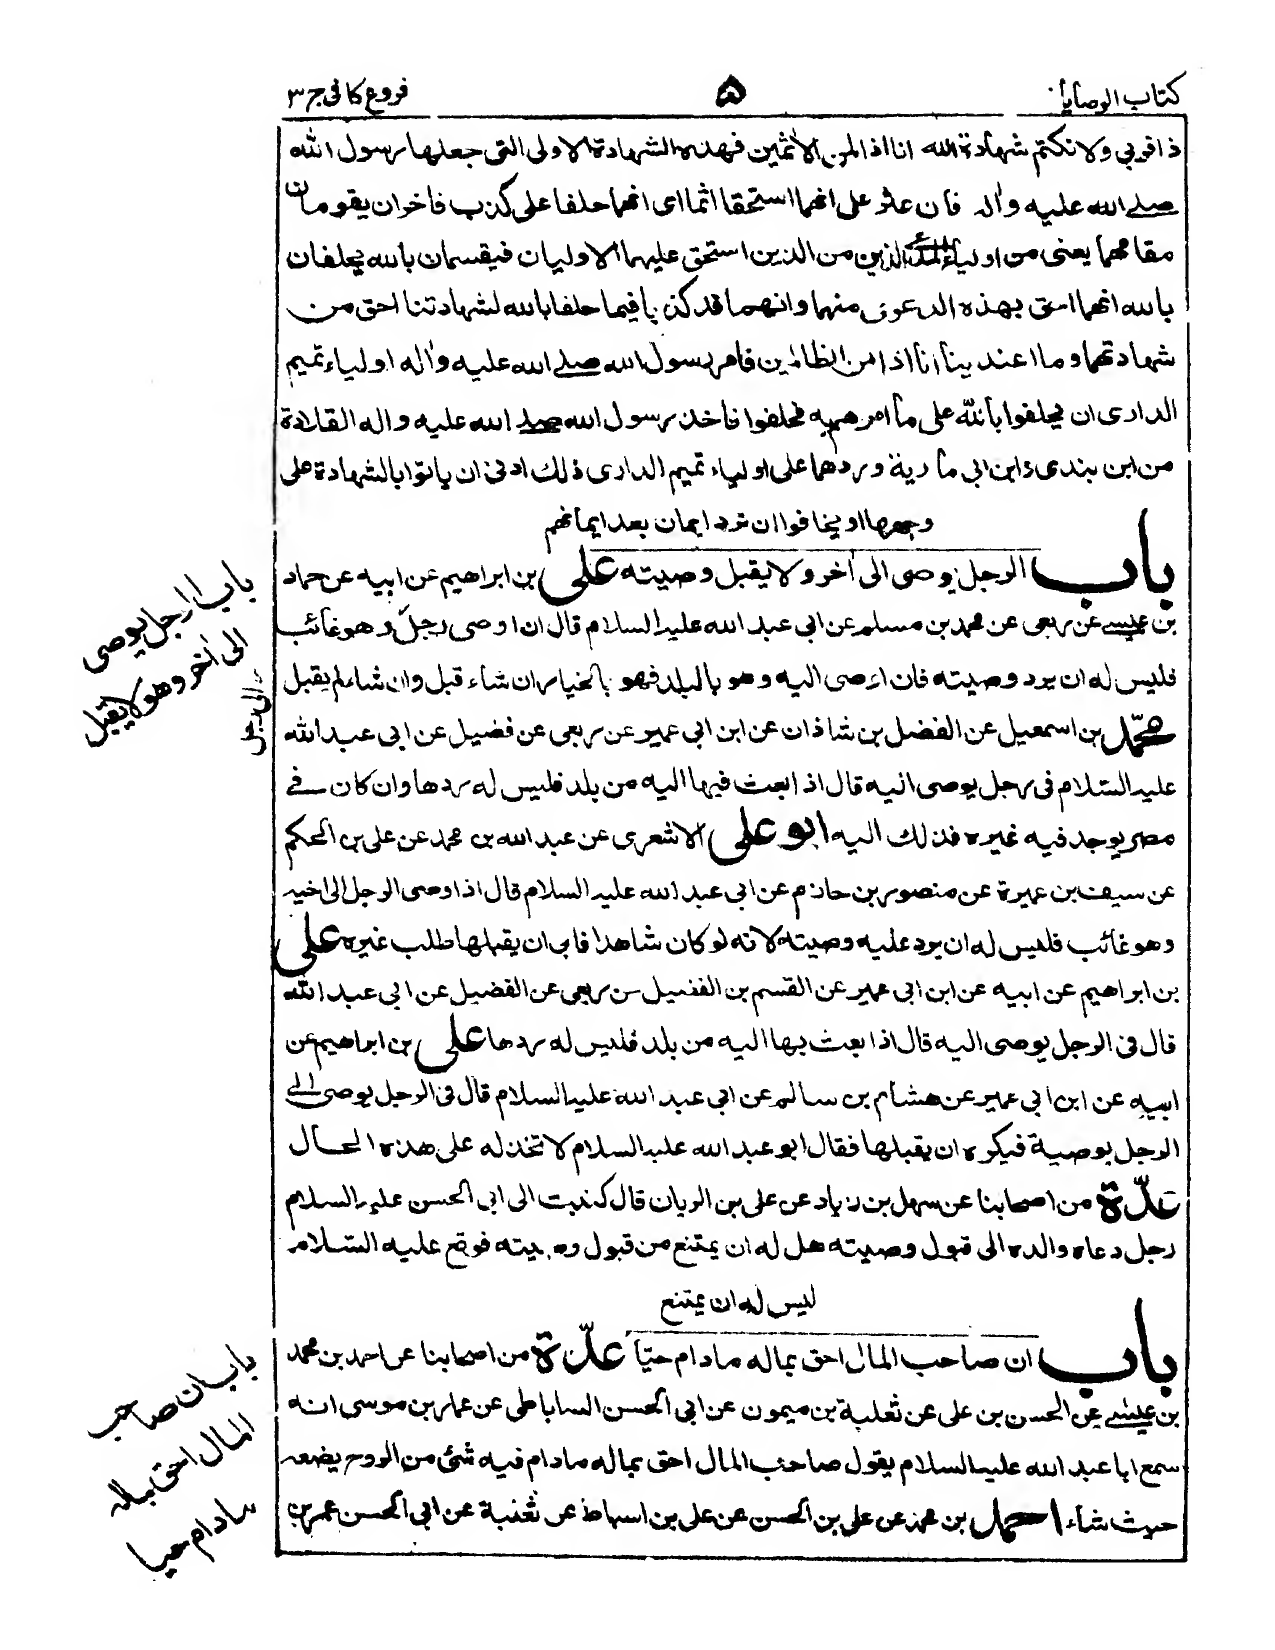 كتاب الوصايا
۵
فروع كافى ج ٣
ذا قربى ولا نكتم شهادة الله انا اذا لمن الاٰثمين فهذه الشهادة الاولى التى جعلها رسول الله
صلى الله عليه واٰله فان عثر على انهما استحقا اثما اى انهما حلفا على كذب فاخران يقومان
مقامهما يعنى من اولياء المدعى الذين من الذين استحق عليهما الاوليان فيقسمان بالله يحلفان
بالله انهما احق بهذه الدعوى منهما وانهما قد كذبا فيما حلفا بالله لشهادتنا احق من
شهادتهما وما اعتدينا انا اذا لمن الظالمين فامر رسول الله صلى الله عليه واٰله اولياء تميم
الدارى ان يحلفوا بالله على ما امرهم به فحلفوا فاخذ رسول الله صلى الله عليه واله القلادة
من ابن بندى وابن ابى مارية وردهما على اولياء تميم الدارى ذلك ادنى ان ياتوا بالشهادة على
وجهها او يخافوا ان ترد ايمان بعد ايمانهم
باب الرجل يوصى الى اٰخر ولا يقبل وصيته على بن ابراهيم عن ابيه عن حماد
بن عيسى عن ربعى عن محمد بن مسلم عن ابى عبد الله عليه السلام قال ان اوصى رجل وهو غائب
فليس له ان يرد وصيته فان اوصى اليه وهو بالبلد فهو بالخيار ان شاء قبل وان شاء لم يقبل
محمّد بن اسمعيل عن الفضل بن شاذان عن ابن ابى عمير عن ربعى عن فضيل عن ابى عبد الله
عليه السّلام فى رجل يوصى اليه قال اذا بعث فيها اليه من بلد فليس له ردها وان كان فى
مصر يوجد فيه غيره فذلك اليه ابو على الاشعرى عن عبد الله بن محمد عن على بن الحكم
عن سيف بن عميرة عن منصور بن حازم عن ابى عبد الله عليه السلام قال اذا وصى الرجل الى اخيه
وهو غائب فليس له ان يرد عليه وصيته لانه لو كان شاهدا فابى ان يقبلها طلب غيره على
بن ابراهيم عن ابيه عن ابن ابى عمير عن القسم بن الفضيل عن ربعى عن الفضيل عن ابى عبد الله
قال فى الرجل يوصى اليه قال اذا بعث بها اليه من بلد فليس له ردها على بن ابراهيم عن
ابيه عن ابن ابى عمير عن هشام بن سالم عن ابى عبد الله عليه السلام قال فى الرجل يوصى الى
الرجل بوصية فيكره ان يقبلها فقال ابو عبد الله عليه السلام لا تخذله على هذه الحال
عدّة من اصحابنا عن سهل بن زياد عن على بن الريان قال كتبت الى ابى الحسن عليه السلام
رجل دعاه والده الى قبول وصيته هل له ان يمتنع من قبول وصيته فوقع عليه السّلام
ليس له ان يمتنع
باب ان صاحب المال احق بماله مادام حيّا عدّة من اصحابنا عن احمد بن محمد
بن عيسى عن الحسن بن على عن ثعلبة بن ميمون عن ابى الحسن الساباطى عن عمار بن موسى انه
سمع ابا عبد الله عليه السلام يقول صاحب المال احق بماله مادام فيه شئ من الروح يضعه
حيث شاء احمد بن محمد عن على بن الحسن عن على بن اسباط عن ثعلبة عن ابى الحسن عمر بن
باب الرجل يوصى
الى اٰخر وهو لا يقبل
باب ان صاحب
المال احق بماله
مادام حيا